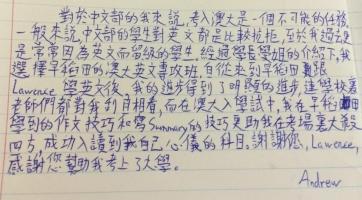 對於中文部的我來說，考入澳大是一個不可能的任務，
一般來說，中文部的學生對英文都是比較抗拒，至於我過去更
是常常因為英文而留級的學生，經過學長學姐的介紹下，我
選擇早稻田的澳大英文專攻班，自從來到早稻田跟
Lawrence 學英文後，我的進步得到了明顯的進步，連學校嘉
老師們都對我刮目相看，而在澳大入學試中，我在早稻田
學到的作文技巧和寫Summary的技巧更助我在考場裏大殺
四方，成功入讀到我自己心儀的科目。謝謝您，Lawrence，
感謝您幫助我考上了大學。
Andrew